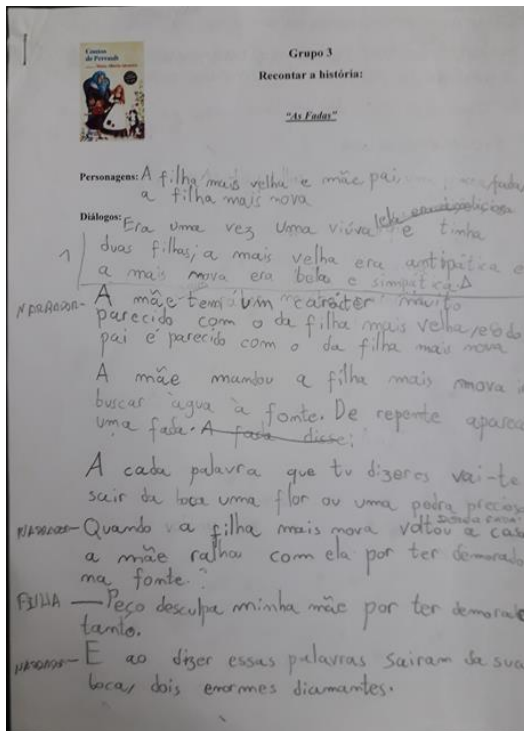 Contos
de Perrault
Grupo 3
Recontar a história:
"As Fadas"
Personagens: A filha mais velha e mãe, pai, fada
a filha mais nova
Diálogos: Era uma vez uma viúva e tinha
1 duas filhas, a mais velha era antipática e
a mais nova era bela e simpática.
NARRADOR- A mãe tem um carácter muito
parecido com o da filha mais velha, e o do
pai é parecido com o da filha mais nova
A mãe mandou a filha mais nova
buscar água à fonte. De repente apareceu
uma fada. A fada disse:
A cada palavra que tu dizeres vai-te
sair da boca uma flor ou uma pedra preciosa
NARRADOR- Quando a filha mais nova voltou a casa
a mãe ralhou com ela por ter demorado
na fonte.
FILHA — Peço desculpa minha mãe por ter demorado
tanto.
NARRADOR- E ao dizer essas palavras sairam da sua
boca, dois enormes diamantes.